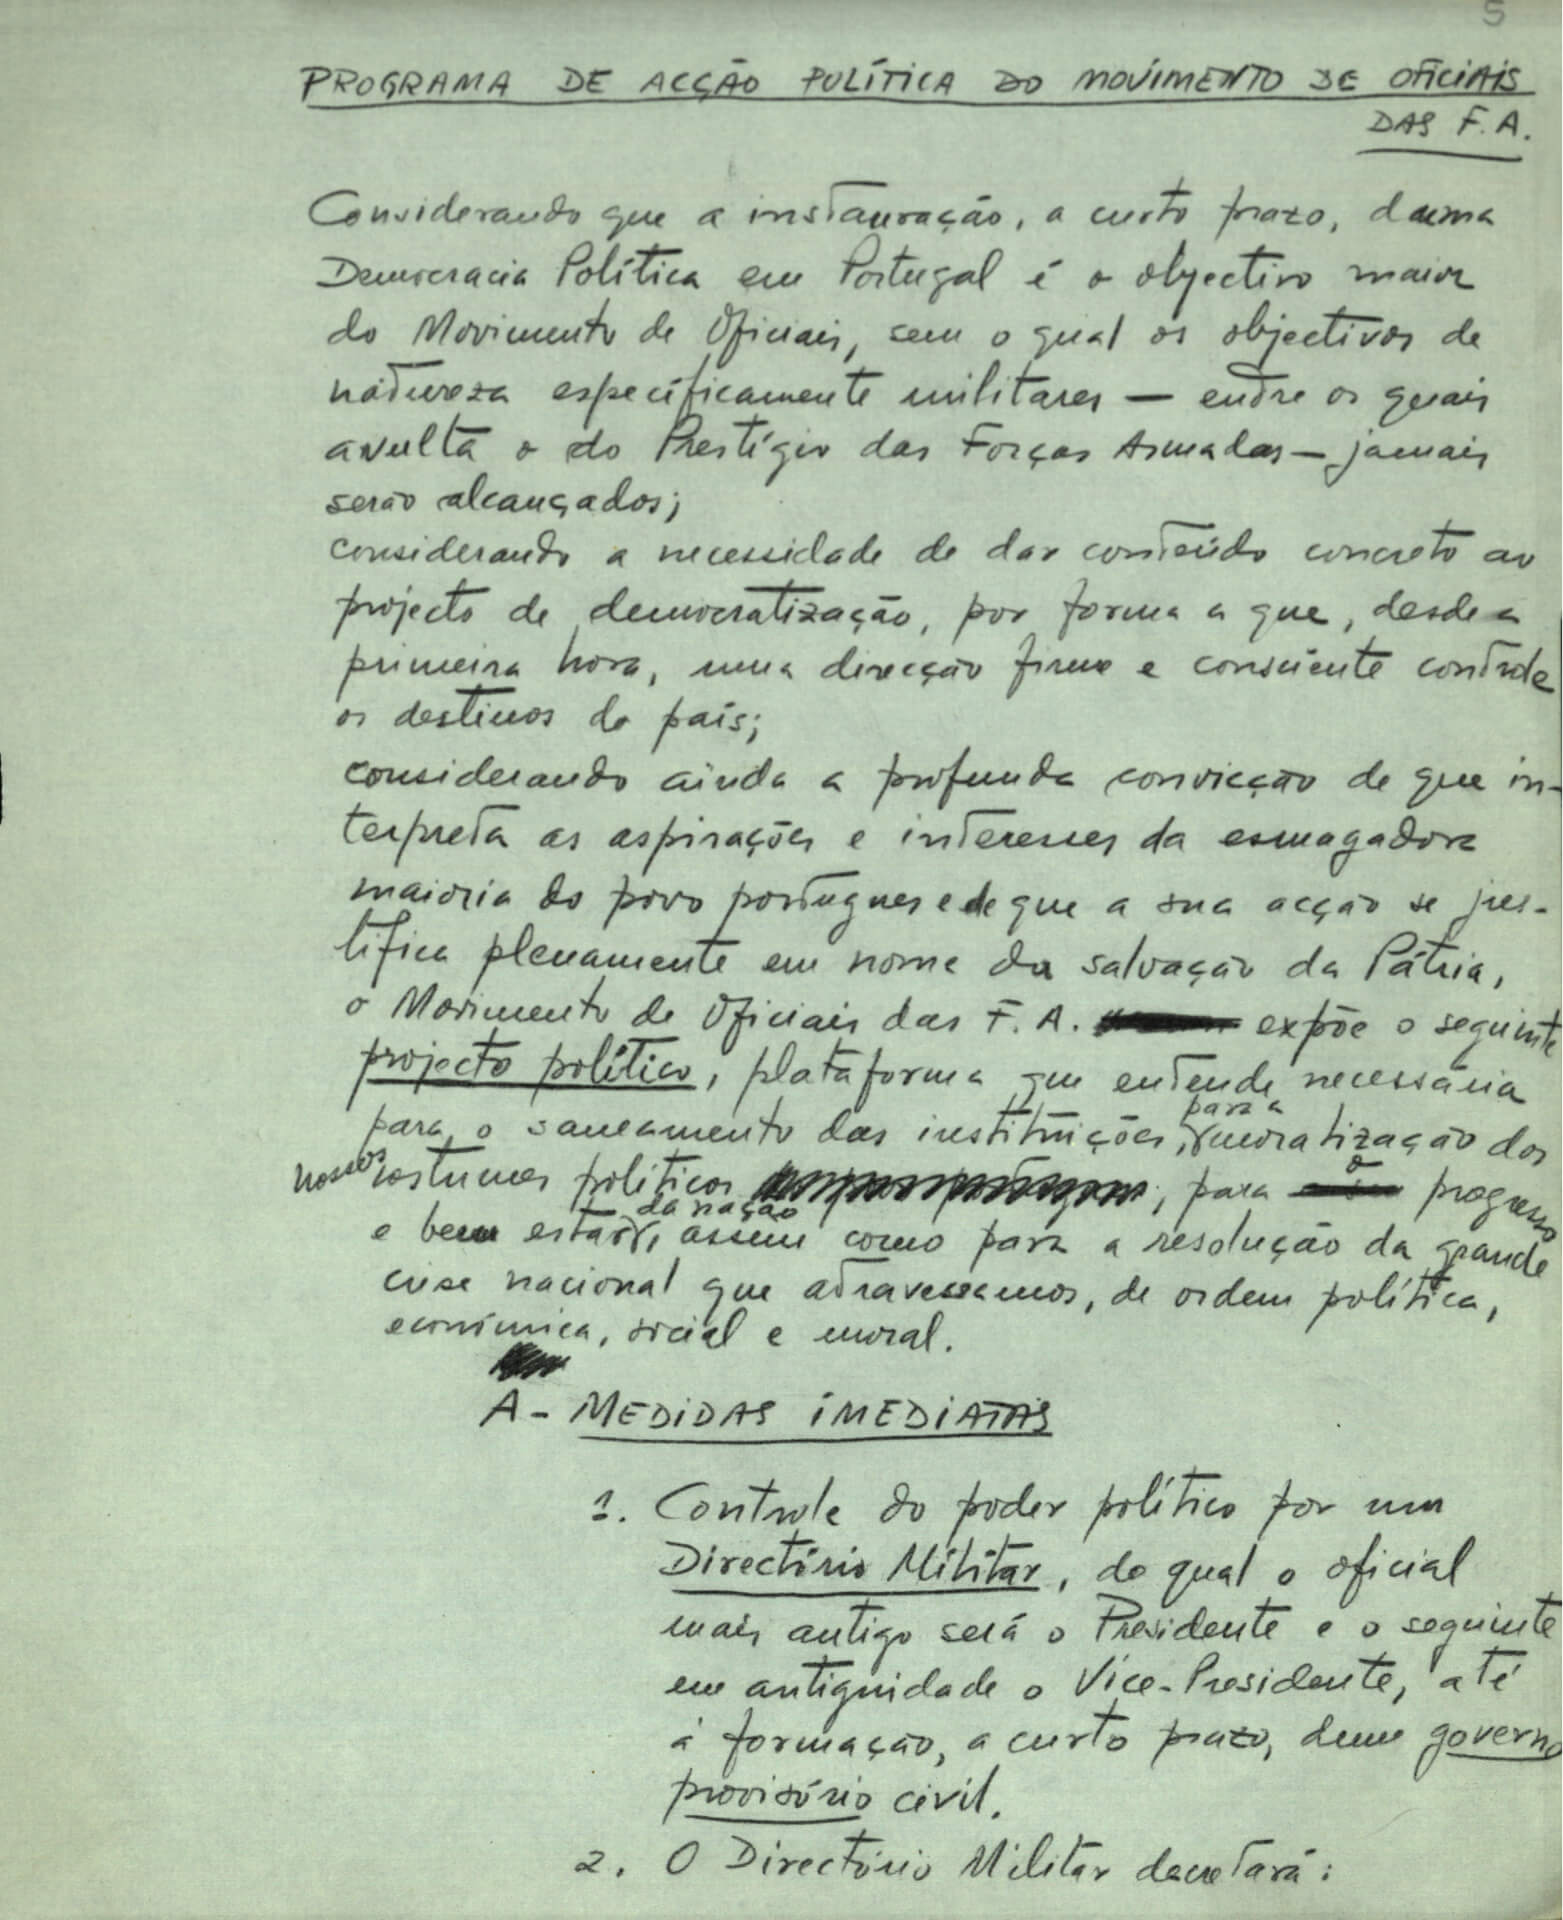 5
PROGRAMA DE ACÇÃO POLÍTICA DO MOVIMENTO DE OFICIAIS
DAS F.A.
Considerando que a instauração, a curto prazo, duma
Democracia Política em Portugal é o objectivo maior
do Movimento de Oficiais, sem o qual os objectivos de
natureza especificamente militares — entre os quais
avulta o do Prestígio das Forças Armadas — jamais
serão alcançados;
considerando a necessidade de dar conteúdo concreto ao
projecto de democratização, por forma a que, desde a
primeira hora, uma direcção firme e consciente controle
os destinos do país;
considerando ainda a profunda convicção de que in-
terpreta as aspirações e interesses da esmagadora
maioria do povo portugues e de que a sua acção se jus-
tifica plenamente em nome da salvação da Pátria,
o Movimento de Oficiais das F.A. expõe o seguinte
projecto político, plataforma que entende necessária
para o saneamento das instituições, para a moratização dos
nossos costumes políticos, para o progresso
e bem estar da nação, assim como para a resolução da grande
crise nacional que atravessamos, de ordem política,
económica, social e moral.
A - MEDIDAS IMEDIATAS
1. Controle do poder político por um
Directório Militar, do qual o oficial
mais antigo será o Presidente e o seguinte
em antiguidade o Vice-Presidente, até
à formação, a curto prazo, dum governo
provisório civil.
2. O Directório Militar decretará: